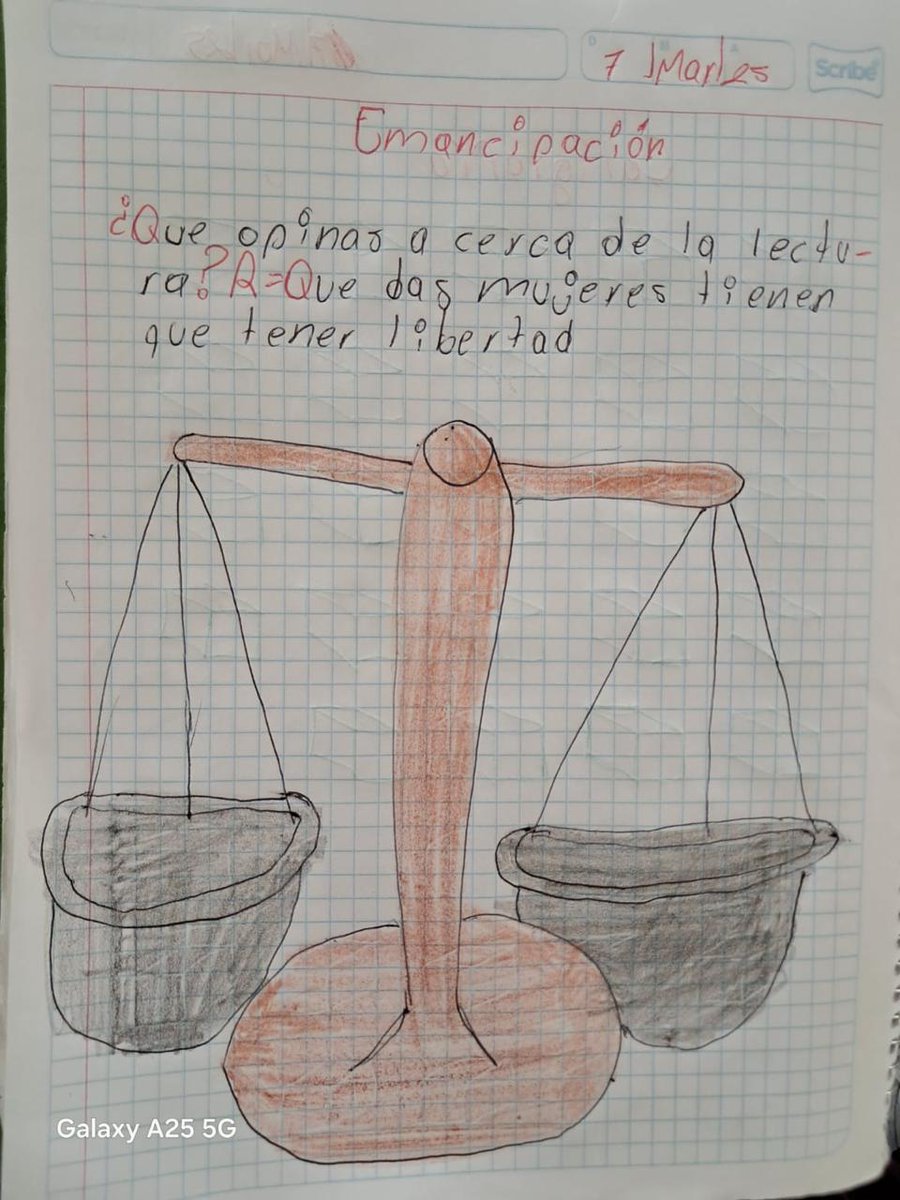 7 Martes
Scribe
Emancipación
¿Que opinas a cerca de la lectu-
ra? R=Que das mujeres tienen
que tener libertad
Galaxy A25 5G